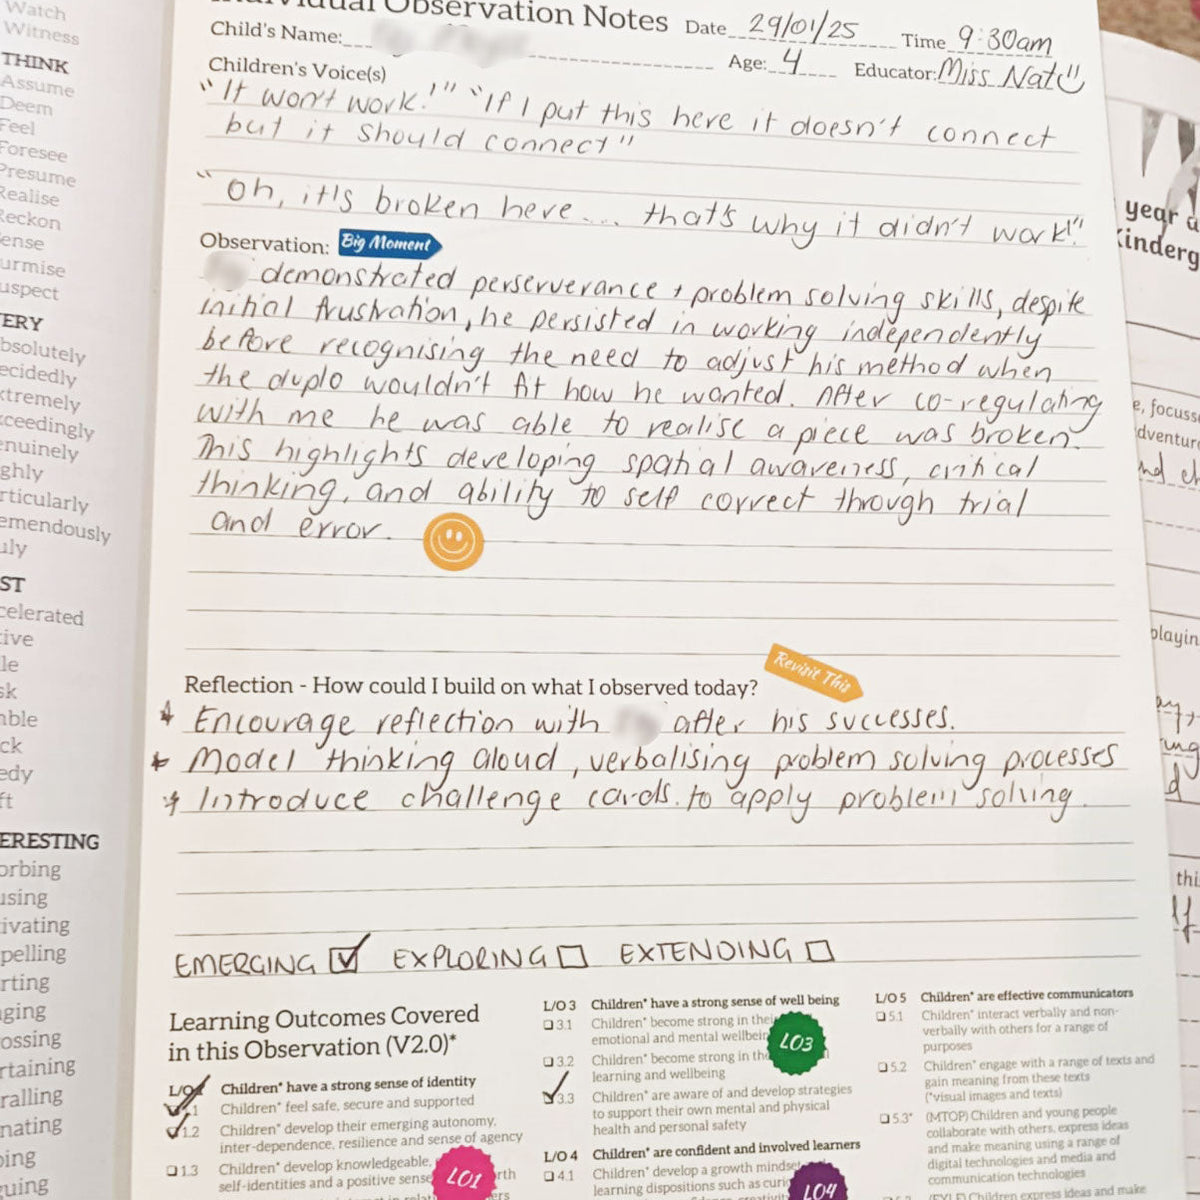 Observation Notes Date 29/01/25 Time 9:30am
Child's Name:
Age: 4 Educator: Miss Nat
Children's Voice(s)
"It won't work!" "If I put this here it doesn't connect
but it should connect"
"Oh, it's broken here... that's why it didn't work!"
Observation: Big Moment
demonstrated perserverance + problem solving skills, despite
initial frustration, he persisted in working independently
before recognising the need to adjust his method when
the duplo wouldn't fit how he wanted. After co-regulating
with me he was able to realise a piece was broken.
This highlights developing spatial awareness, critical
thinking, and ability to self correct through trial
and error.
Revisit This
Reflection - How could I build on what I observed today?
* Encourage reflection with after his successes.
* Model thinking aloud, verbalising problem solving processes
* Introduce challenge cards. to apply problem solving.
EMERGING EXPLORING EXTENDING
Learning Outcomes Covered
in this Observation (V2.0)*
Children* have a strong sense of identity
Children* feel safe, secure and supported
1.2 Children* develop their emerging autonomy,
inter-dependence, resilience and sense of agency
1.3 Children* develop knowledgeable,
self-identities and a positive sense
LO1
L/O 3 Children* have a strong sense of well being
3.1 Children* become strong in their
emotional and mental wellbeing
LO3
3.2 Children* become strong in
learning and wellbeing
3.3 Children* are aware of and develop strategies
to support their own mental and physical
health and personal safety
L/O 4 Children* are confident and involved learners
4.1 Children* develop a growth mindset
learning dispositions such as
LO4
L/O 5 Children* are effective communicators
5.1 Children* interact verbally and non-
verbally with others for a range of
purposes
5.2 Children* engage with a range of texts and
gain meaning from these texts
(*visual images and texts)
5.3* (MTOP) Children and young people
collaborate with others, express ideas
and make meaning using a range of
digital technologies and media and
communication technologies
(EYLF) Children express ideas and make
Watch
Witness
THINK
Assume
Deem
Feel
Foresee
Presume
Realise
Reckon